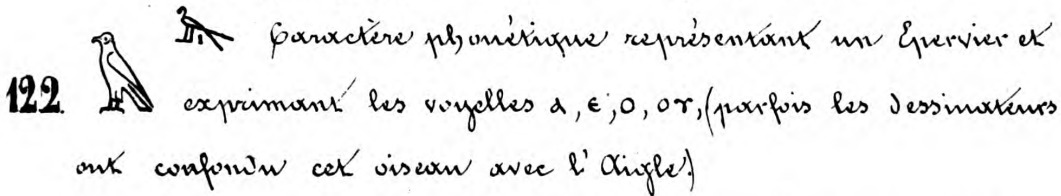 Caractère phonétique représentant un Épervier et
122. exprimant les voyelles ⲁ, ⲉ, ⲟ, ⲟⲩ, (parfois les dessinateurs
ont confondu cet oiseau avec l'Aigle.)